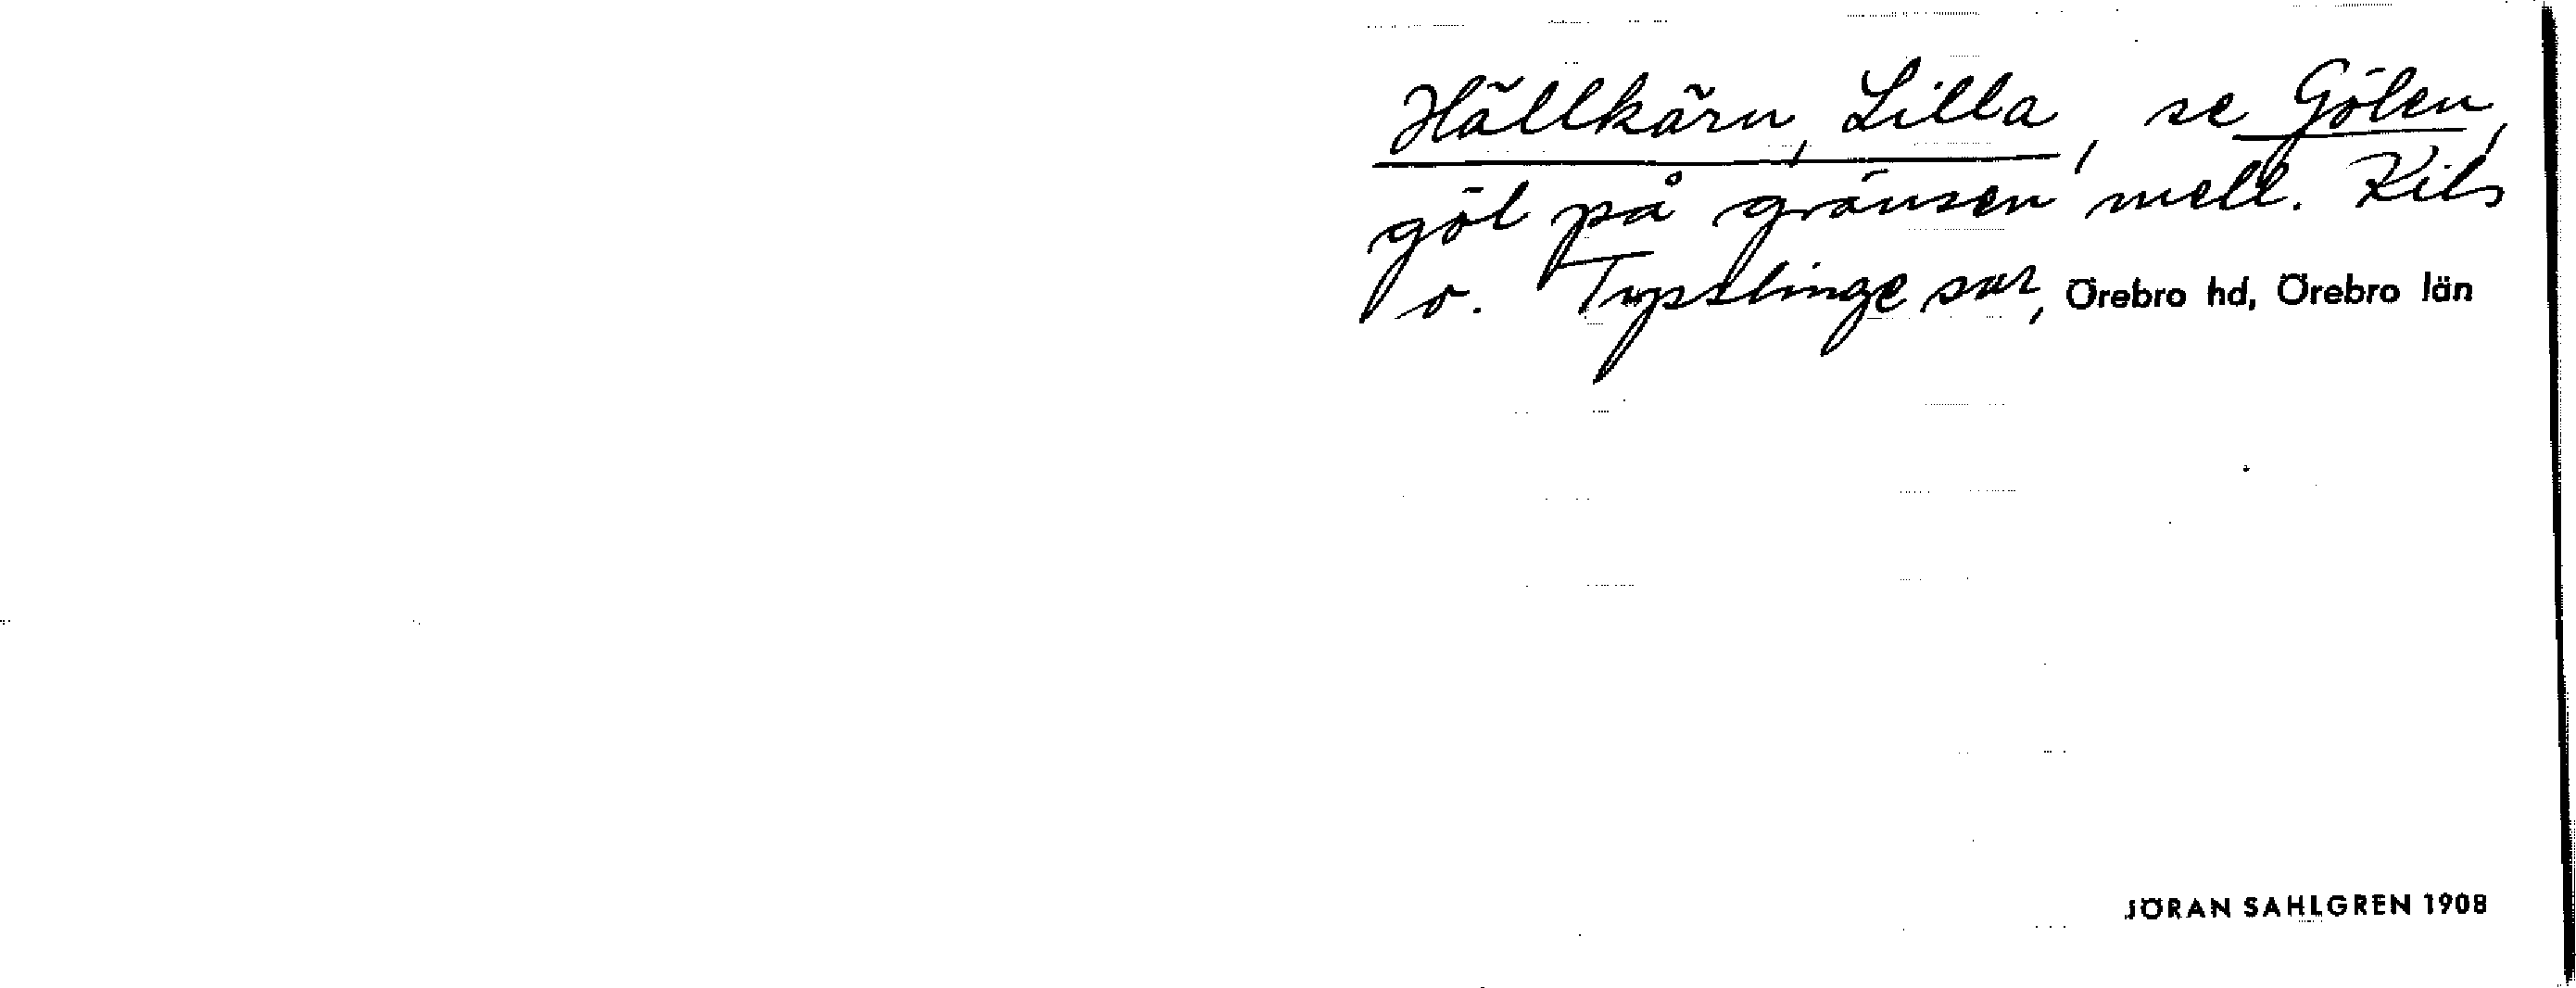 Hällkärn, Lilla, se Gölen,
göl på gränsen mell. Kils
o. Tysslinge snr, Örebro hd, Örebro län
JÖRAN SAHLGREN 1908